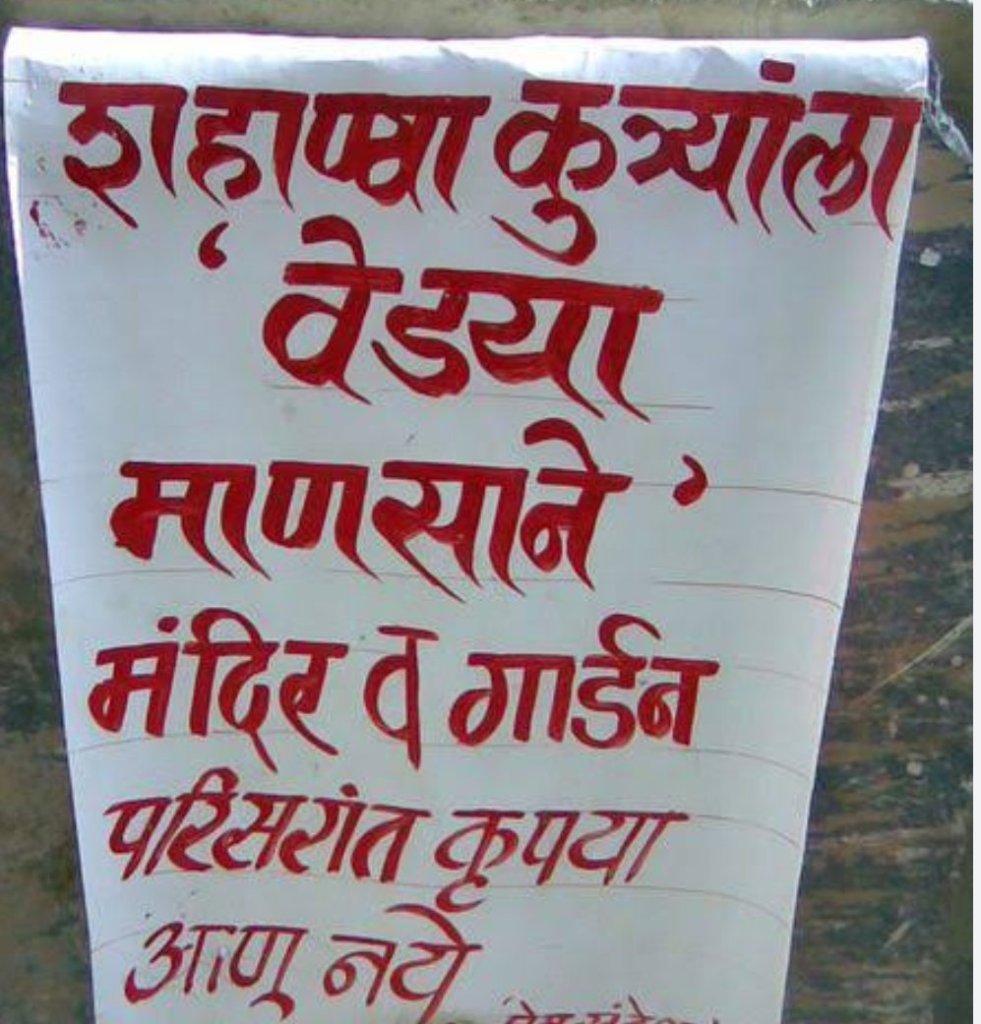 शहाण्या कुत्र्यांला
‘वेडया
माणसाने’
मंदिर व गार्डन
परिसरांत कृपया
आणु नये